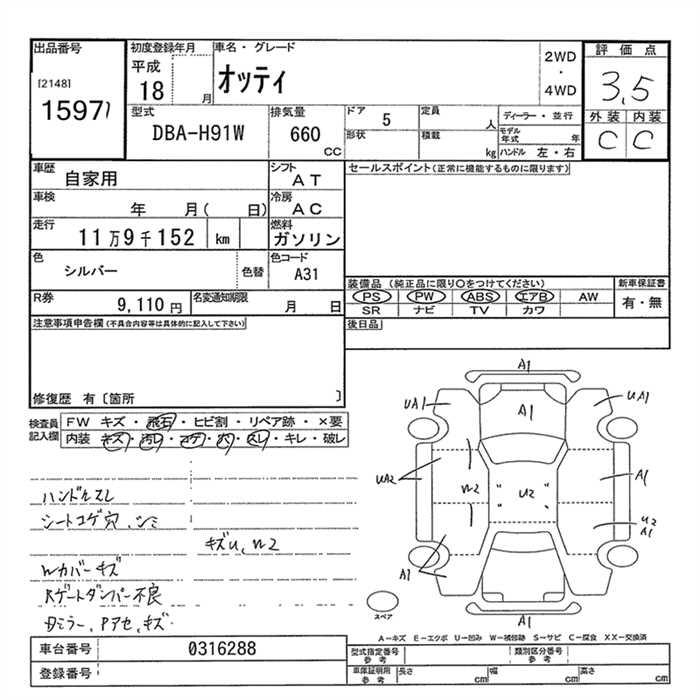 出品番号
[2148]
1597
初度登録年月
平成
18 月
車名・グレード
オッティ
2WD
・
4WD
評価点
3,5
外装 内装
C C
型式
DBA-H91W
排気量
660
CC
ドア
5
定員
人
形状
積載
kg
ディーラー・並行
モデル年式 年
ハンドル 左・右
車歴
自家用
シフト
AT
車検
年 月( 日)
冷房
AC
走行
11万9千152 km
燃料
ガソリン
色
シルバー
色替
色コード
A31
R券
9,110円
名変通知期限
月 日
セールスポイント(正常に機能するものに限ります)
装備品(純正品に限り○をつけてください)
PS PW ABS エアB AW
SR ナビ TV カワ
新車保証書
有・無
後日品
注意事項申告欄(不具合内容等は具体的に記入して下さい)
修復歴 有〔箇所 〕
検査員記入欄
FW キズ・飛石・ヒビ割・リペア跡・×要
内装 キズ・汚レ・コゲ・穴・スレ・キレ・破レ
ハンドルスレ
シートコゲ穴、シミ
キズU、W2
Wカバーキズ
Rゲートダンパー不良
Dミラー、Pアセ、キズ
A1
UA1
A1
UA1
UA2
W2
U2
A1
U2
A1
A1
A1
スペア
A―キズ E―エクボ U―凹み W―補修跡 S―サビ C―腐食 XX―交換済
車台番号
0316288
登録番号
型式指定番号
参考
類別区分番号
参考
車庫証明用
参考
長さ cm
幅 cm
高さ cm